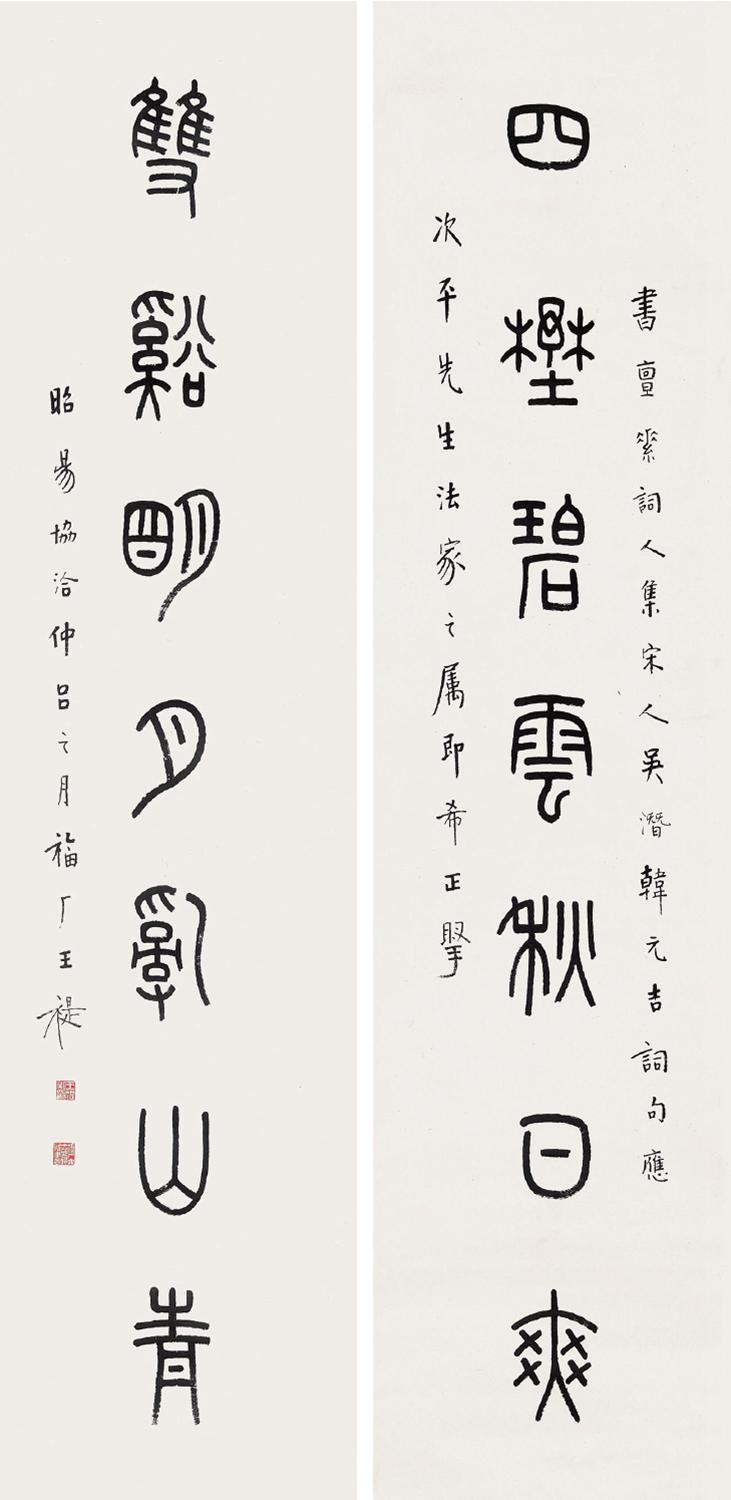 書亶素詞人集宋人吳潛韓元吉詞句應
四壄碧雲秋日爽
次平先生法家之属即希正擥
雙谿朙月亂山青
昭昜協洽仲呂之月福厂王禔